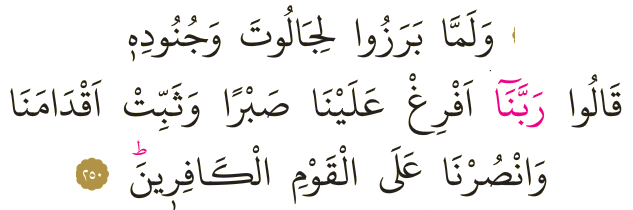 وَلَمَّا بَرَزُوا لِجَالُوتَ وَجُنُودِهٖ
قَالُوا رَبَّنَٓا اَفْرِغْ عَلَيْنَا صَبْرًا وَثَبِّتْ اَقْدَامَنَا
وَانْصُرْنَا عَلَى الْقَوْمِ الْكَافِرٖينَۜ ﴿٢٥٠﴾